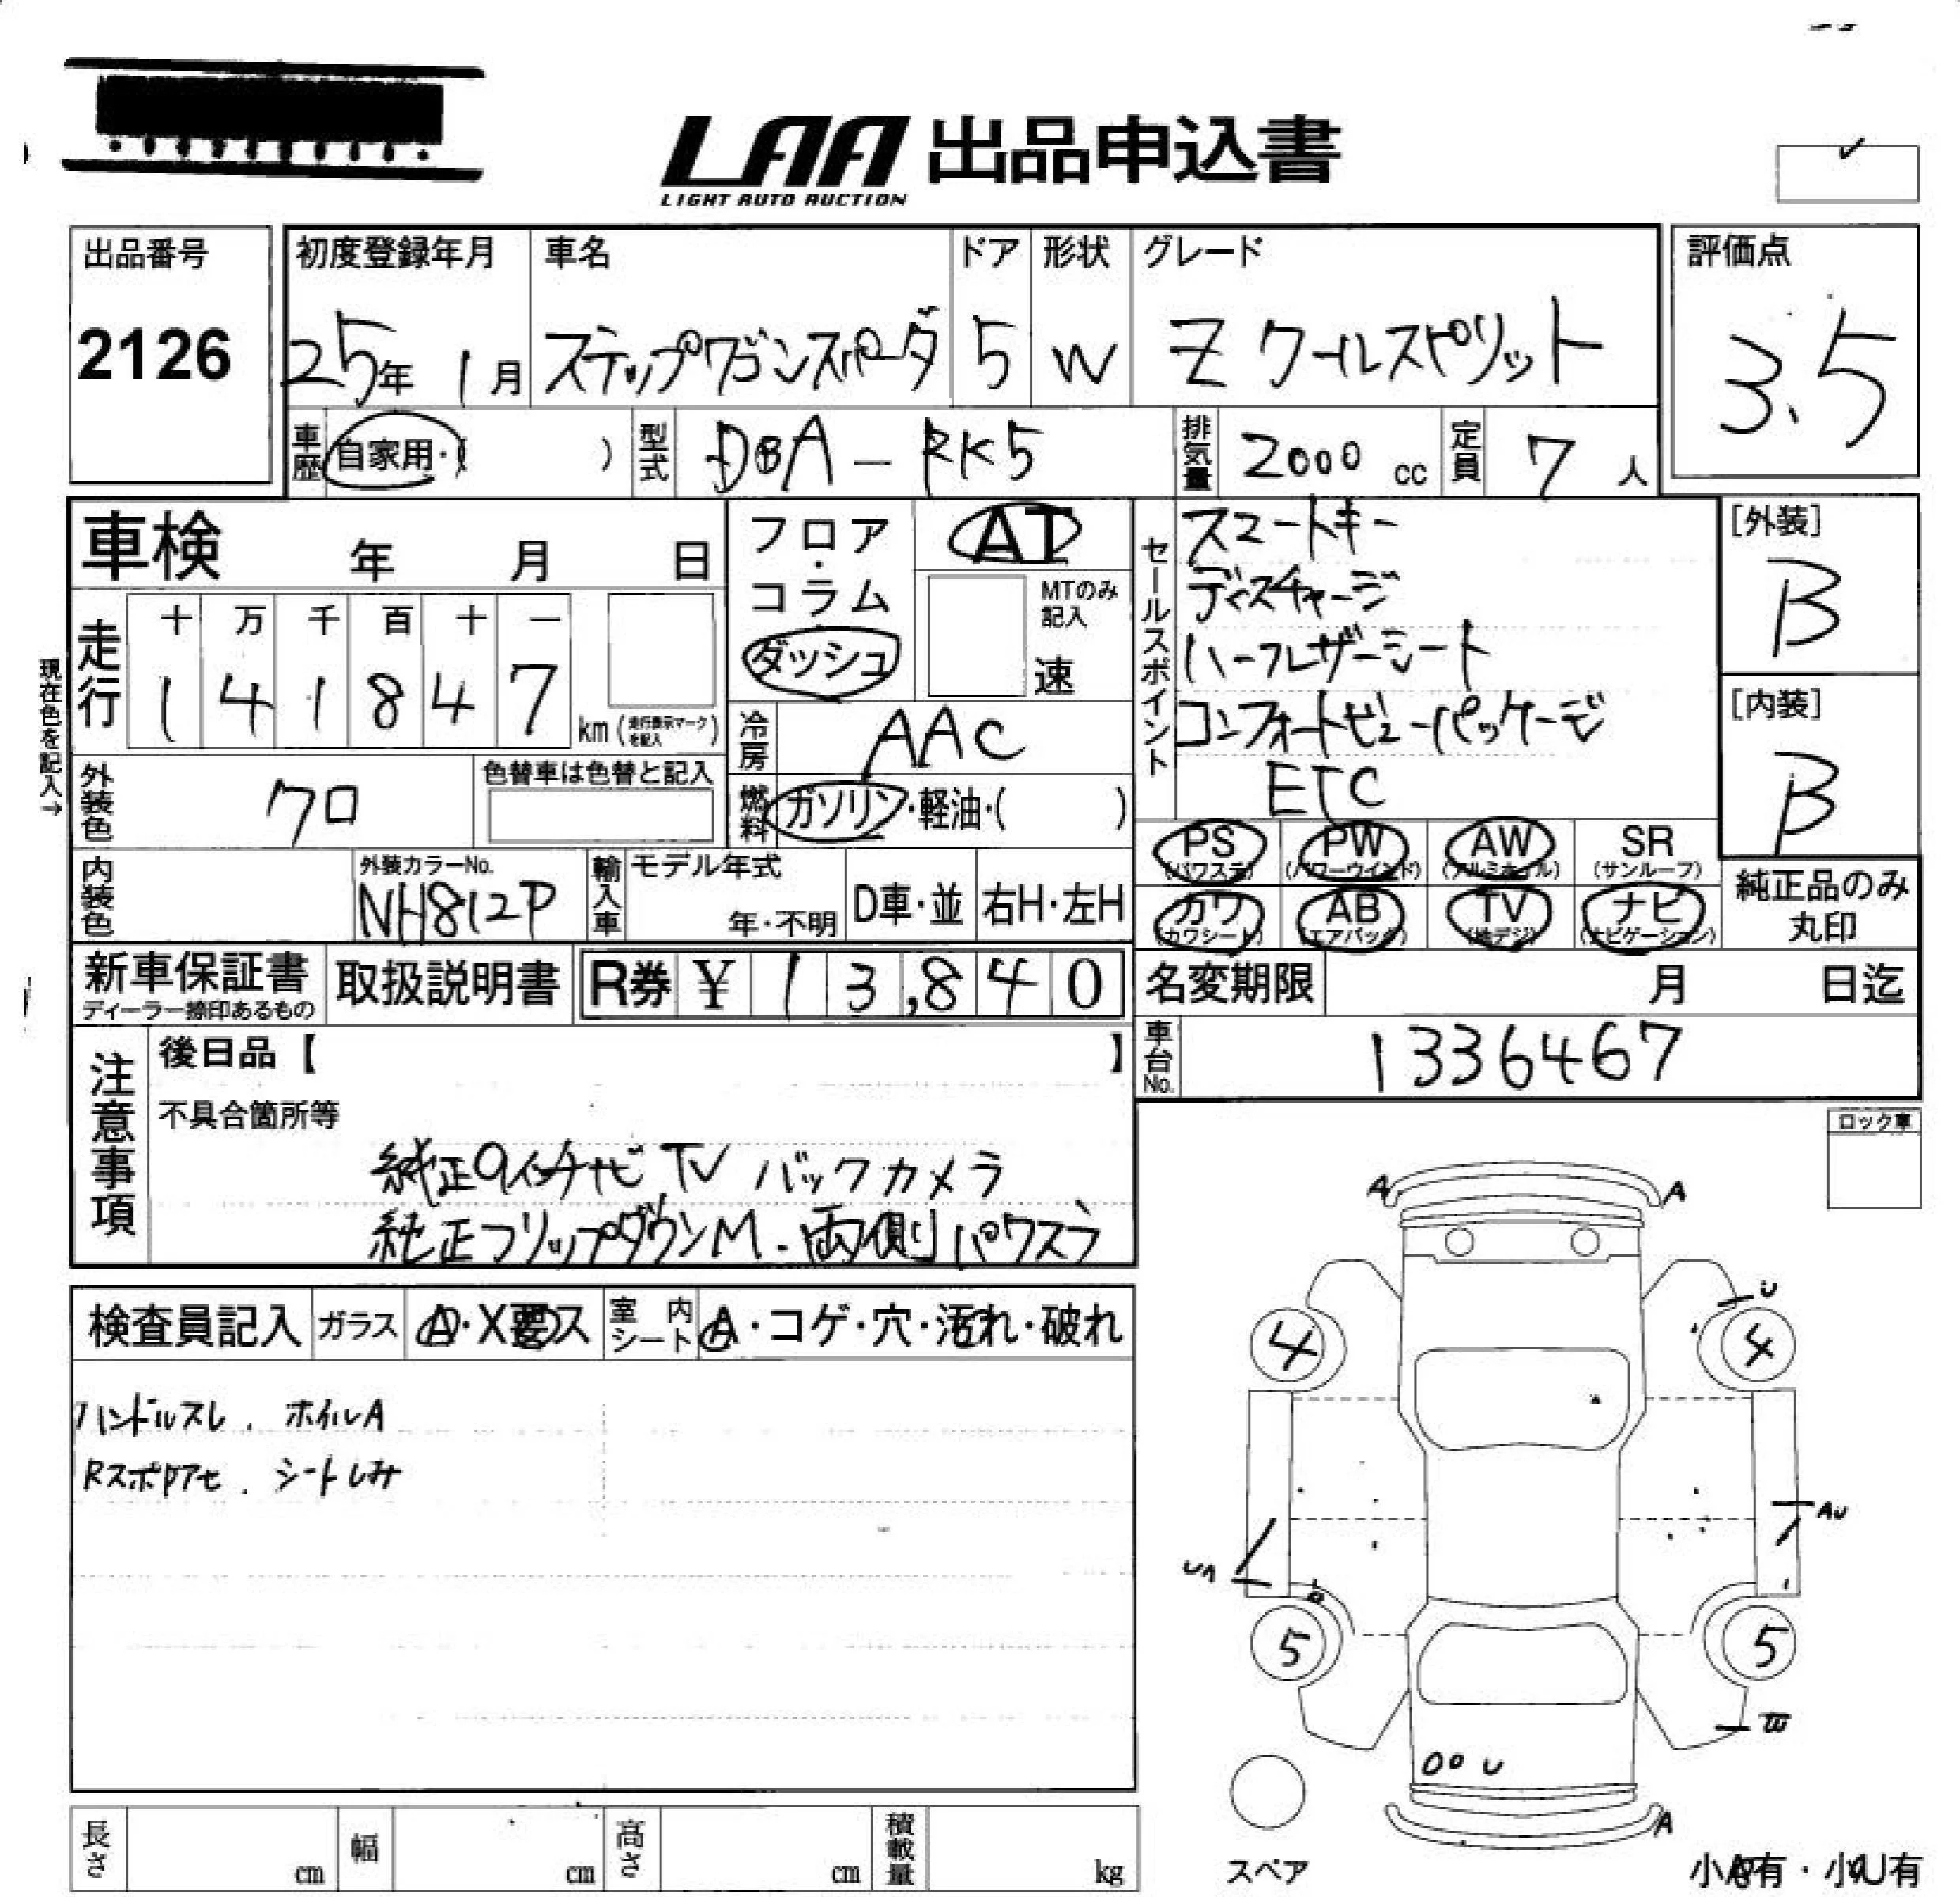 LAA 出品申込書
LIGHT AUTO AUCTION
出品番号
2126
初度登録年月
25年 1月
車名
ステップワゴンスパーダ
ドア
5
形状
W
グレード
Z クールスピリット
評価点
3.5
車歴 自家用・( )
型式 DBA - RK5
排気量 2000 cc
定員 7 人
車検 年 月 日
フロア・コラム・ダッシュ
AT
MTのみ記入
速
セールスポイント
スマートキー
ディスチャージ
ハーフレザーシート
コンフォートビューパッケージ
ETC
[外装]
B
[内装]
B
現在色を記入→
走行
十 万 千 百 十 一
1 4 1 8 4 7 km (走行表示マークを記入)
冷房 AAC
外装色 クロ
色替車は色替と記入
燃料 ガソリン・軽油・( )
PS (パワステ) PW (パワーウインド) AW (アルミホイル) SR (サンルーフ)
カワ (カワシート) AB (エアバック) TV (地デジ) ナビ (ナビゲーション)
純正品のみ丸印
内装色
外装カラーNo.
NH812P
輸入車 モデル年式
年・不明
D車・並 右H・左H
新車保証書
ディーラー捺印あるもの
取扱説明書
R券 ¥ 13,840
名変期限 月 日迄
車台No. 1336467
注意事項
後日品【 】
不具合箇所等
純正9インチナビ TV バックカメラ
純正フリップダウンM. 両側パワスラ
ロック車
検査員記入 ガラス A・X要・ス 室内シート A・コゲ・穴・汚れ・破れ
ハンドルスレ. ホイルA
Rスポロアセ. シートしみ
A A
U
4 4
AU
5 5
W
U
A
スペア
小A有・小U有
長さ cm 幅 cm 高さ cm 積載量 kg